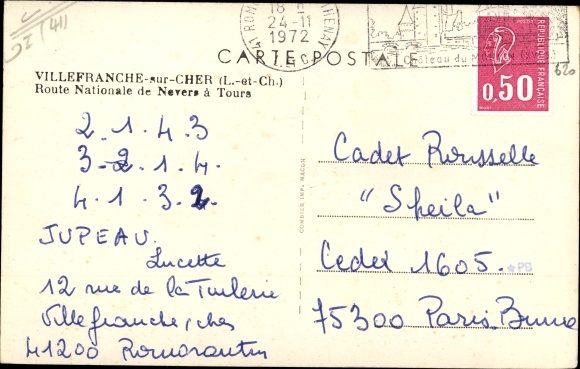 18 H
24-11
1972
CARTE POSTALE
VILLEFRANCHE-sur-CHER (L.-et-Ch.)
Route Nationale de Nevers à Tours
2.1.4.3
3-2.1.4.
4.1.3.2.
JUPEAU.
Lucette
12 rue de la Tuilerie
Villefranche, cher
41200 Romorantin
CORBIER IMP. MACON
RÉPUBLIQUE FRANÇAISE
0,50
620
Cadet Rousselle
"Sheila"
Cedex 1605. *PB
75300 Paris. Brune